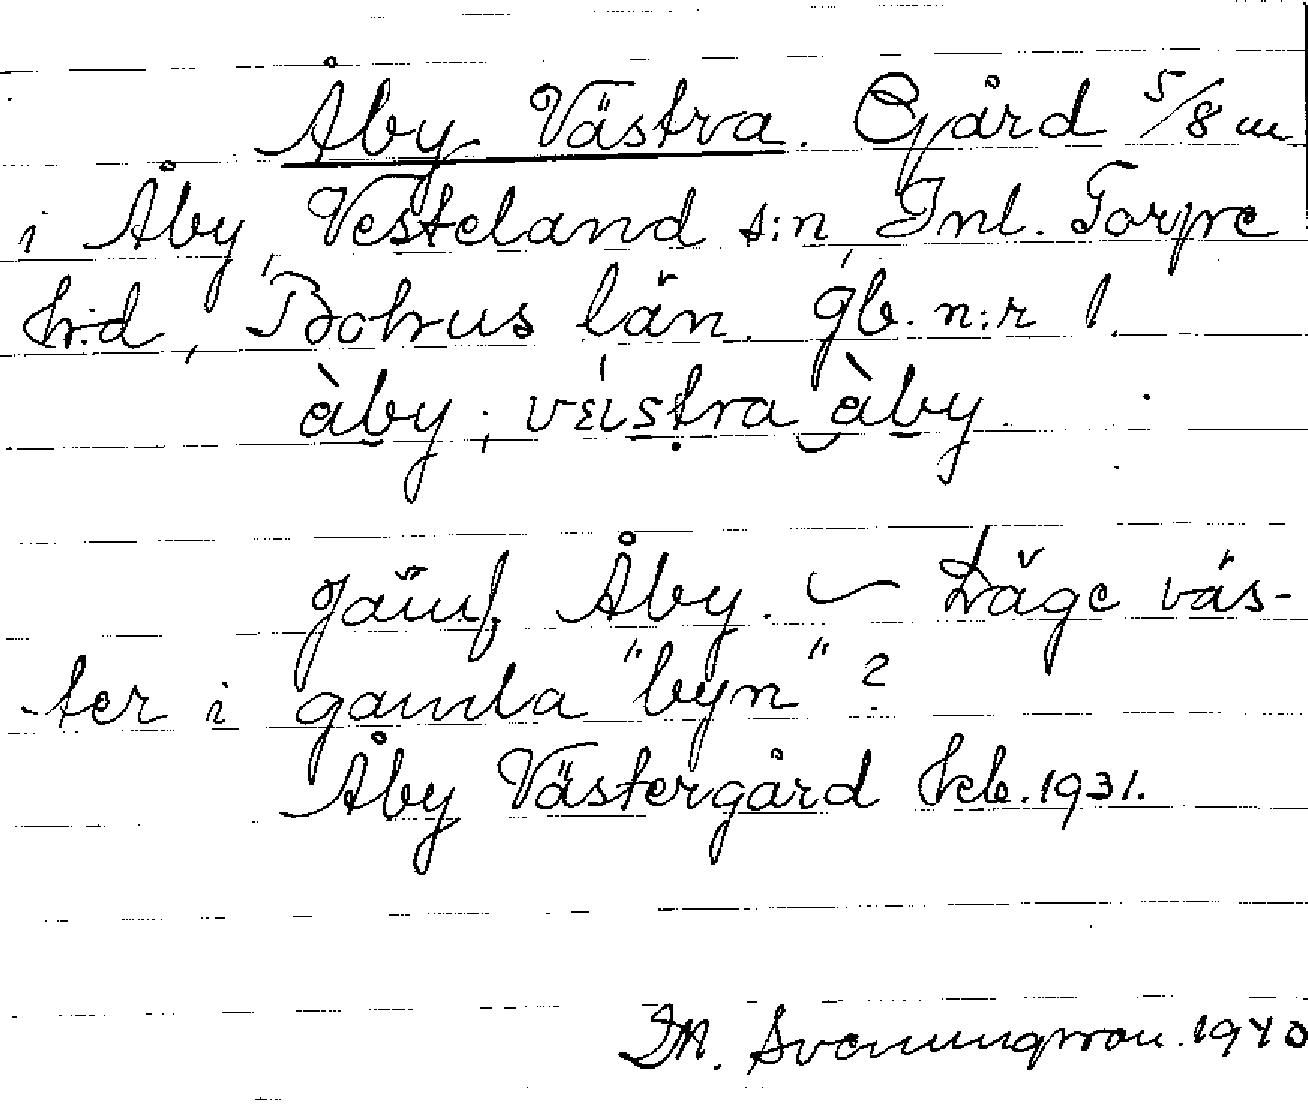 Åby Västra. Gård 5/8 m
i Åby, Vesteland s:n, Inl. Torpe
h:d, Bohus län. gb. n:r 1.
àby; väistra àby
Jämf. Åby. — Läge väs-
ter i gamla "byn"?
Åby Västergård Feb. 1931.
Svenungsson. 1940